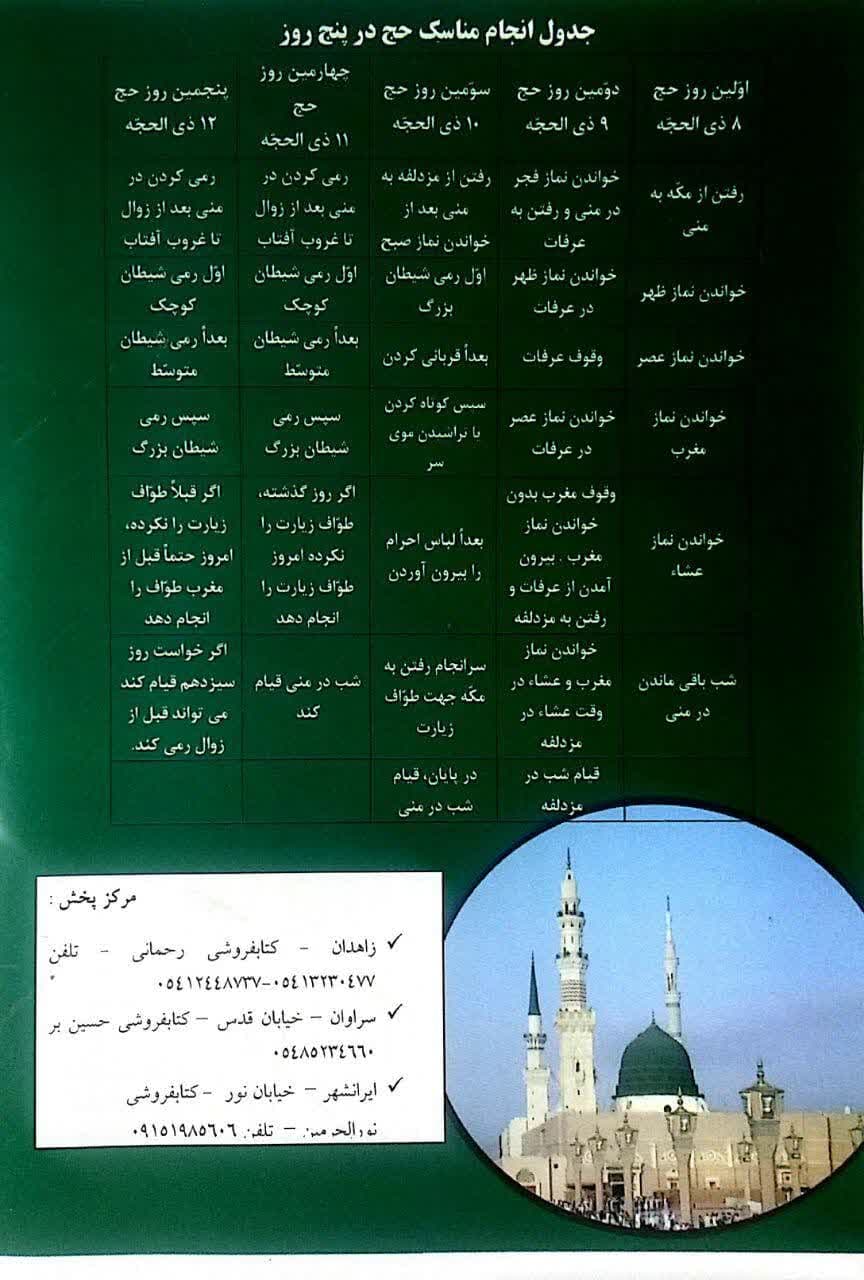 جدول انجام مناسک حج در پنج روز
اوّلین روز حج
۸ ذی الحجّه
دوّمین روز حج
۹ ذی الحجّه
سوّمین روز حج
۱۰ ذی الحجّه
چهارمین روز
حج
۱۱ ذی الحجّه
پنجمین روز حج
۱۲ ذی الحجّه
رفتن از مکّه به
منی
خواندن نماز فجر
در منی و رفتن به
عرفات
رفتن از مزدلفه به
منی بعد از
خواندن نماز صبح
رمی کردن در
منی بعد از زوال
تا غروب آفتاب
رمی کردن در
منی بعد از زوال
تا غروب آفتاب
خواندن نماز ظهر
خواندن نماز ظهر
در عرفات
اول رمی شیطان
بزرگ
اوّل رمی شیطان
کوچک
اوّل رمی شیطان
کوچک
خواندن نماز عصر
وقوف عرفات
بعداً قربانی کردن
بعداً رمی شیطان
متوسّط
بعداً رمی شیطان
متوسّط
خواندن نماز
مغرب
خواندن نماز عصر
در عرفات
سپس کوتاه کردن
یا تراشیدن موی
سر
سپس رمی
شیطان بزرگ
سپس رمی
شیطان بزرگ
خواندن نماز
عشاء
وقوف مغرب بدون
خواندن نماز
مغرب . بیرون
آمدن از عرفات و
رفتن به مزدلفه
بعداً لباس احرام
را بیرون آوردن
اگر روز گذشته،
طوّاف زیارت را
نکرده امروز
طوّاف زیارت را
انجام دهد
اگر قبلاً طوّاف
زیارت را نکرده،
امروز حتماً قبل از
مغرب طوّاف را
انجام دهد
شب باقی ماندن
در منی
خواندن نماز
مغرب و عشاء در
وقت عشاء در
مزدلفه
سرانجام رفتن به
مکّه جهت طوّاف
زیارت
شب در منی قیام
کند
اگر خواست روز
سیزدهم قیام کند
می تواند قبل از
زوال رمی کند.
قیام شب در
مزدلفه
در پایان، قیام
شب در منی
مرکز پخش :
✓ زاهدان - کتابفروشی رحمانی - تلفن
۰۵۴۱۲۴۴۸۷۳۷-۰۵۴۱۳۲۳۰۴۷۷
✓ سراوان – خیابان قدس – کتابفروشی حسین بر
۰۵۴۸۵۲۳۴۶۶۰
✓ ایرانشهر – خیابان نور - کتابفروشی
نورالحرمین – تلفن ۰۹۱۵۱۹۸۵۶۰۶